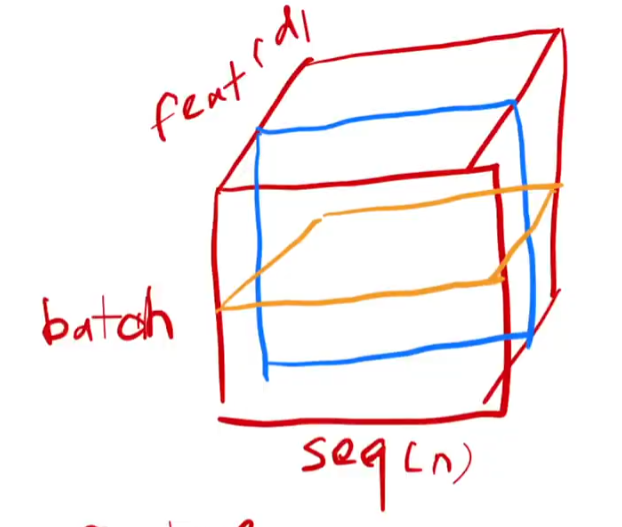 feat(d)
batch
seq(n)